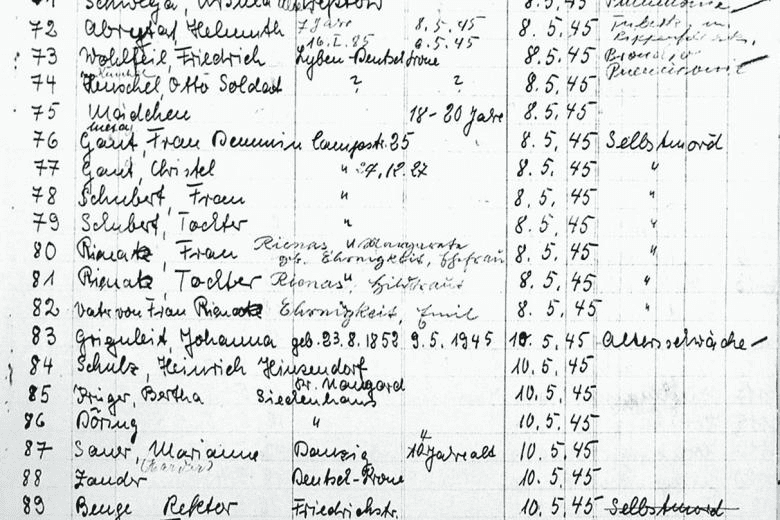 Schwega, Ursula Treptow 8.5.45
72 Helmuth 7 Jahre 8.5.45 8.5.45
16.I.35 6.5.45
73 Wohlfeil, Friedrich Lyben-Deutsch Krone 8.5.45
74 Henschel, Otto Soldat ? ? 8.5.45
75 Mädchen 18-20 Jahre 8.5.45
76 Gaut, Frau Demmin 25 8.5.45 Selbstmord
77 Gaut, Christel " 27 8.5.45 "
78 Schubert, Frau " 8.5.45 "
79 Schubert, Tochter " 8.5.45 "
80 Frau Rienas, Margarete 8.5.45 "
geb. Ehronigkeit, Ehefrau
81 Tochter Rienas, Hiltraut 8.5.45 "
82 Vater von Frau Ehronigkeit, Emil 8.5.45 "
83 Johanna geb. 23.8.1852 9.5.1945 10.5.45 Altersschwäche
84 Schulz, Heinrich Hinzendorf 10.5.45
Kr. Naugard
85 Bertha Siechenhaus 10.5.45
86 Döring " 10.5.45
87 Sauer, Marianne Danzig Jahre alt 10.5.45
88 Zander Deutsch-Krone 10.5.45
89 Benge Rektor Friedrichstr. 10.5.45 Selbstmord